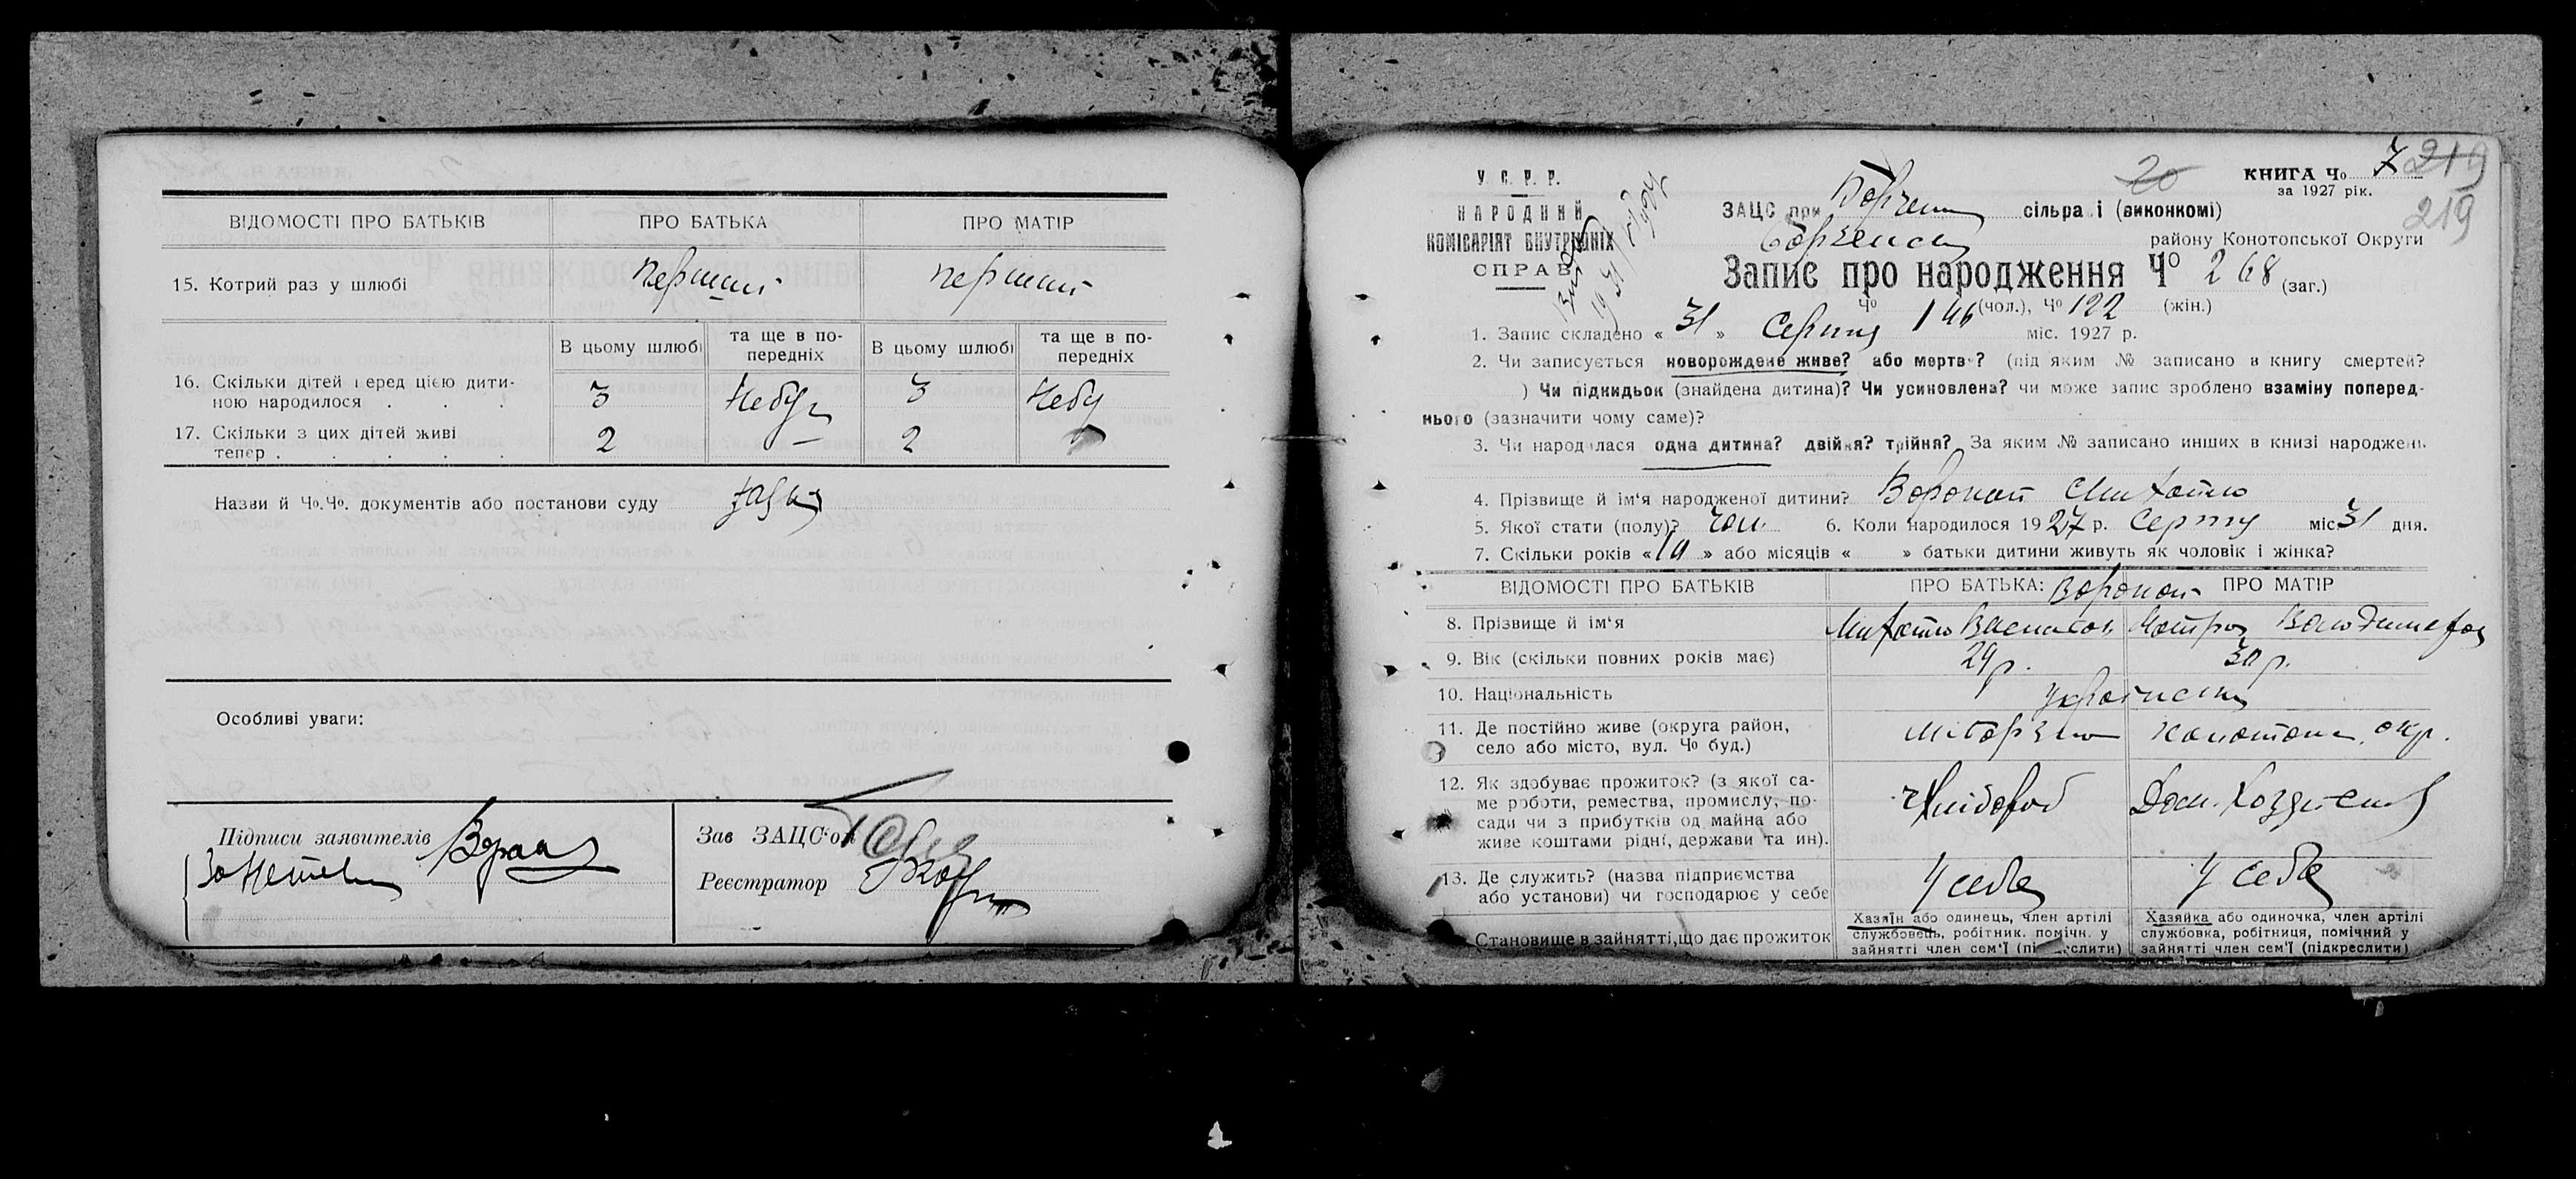 ВІДОМОСТІ ПРО БАТЬКІВ ПРО БАТЬКА ПРО МАТІР
15. Котрий раз у шлюбі перший перший
В цьому шлюбі та ще в попередніх В цьому шлюбі та ще в попередніх
16. Скільки дітей перед цією дити-
ною народилося . . . 3 Небул 3 Небу
17. Скільки з цих дітей живі
тепер . . . . . 2 — 2
Назви й Чо.Чо. документів або постанови суду
Особливі уваги:
Підписи заявителів
Зав ЗАЦС'ом
Реєстратор
У. С. Р. Р.
НАРОДНИЙ
КОМІСАРІЯТ ВНУТРІШНІХ
СПРАВ
20
КНИГА Чо 7 219
за 1927 рік.
219
ЗАЦС при Борзен сільраді (виконкомі)
Борзенск району Конотопської Округи
Запис про народження Чо 268 (заг.)
Чо 146 (чол.), Чо 122 (жін.)
1. Запис складено « 31 » Серпня міс. 1927 р.
2. Чи записується новорождене живе? або мертве? (під яким № записано в книгу смертей?
) Чи підкидьок (знайдена дитина)? Чи усиновлена? чи може запис зроблено взаміну поперед-
нього (зазначити чому саме)?
3. Чи народилася одна дитина? двійня? трійня? За яким № записано инших в книзі народжень
4. Прізвище й ім'я народженої дитини? Вороной Михайло
5. Якої стати (полу)? чол 6. Коли народилося 1927 р. Серпня міс 31 дня.
7. Скільки років « 10 » або місяців « » батьки дитини живуть як чоловік і жінка?
ВІДОМОСТІ ПРО БАТЬКІВ ПРО БАТЬКА: Вороной ПРО МАТІР
8. Прізвище й ім'я Михайло Василев Мотря Володимеров
9. Вік (скільки повних років має) 29 р. 30 р.
10. Національність Українськ
11. Де постійно живе (округа район,
село або місто, вул. Чо буд.) м. Борзна Конотопс. окр.
12. Як здобуває прожиток? (з якої са-
ме роботи, ремества, промислу, по-
сади чи з прибутків од майна або
живе коштами рідні, держави та ин). Хлібороб Дом. Хозяйств
13. Де служить? (назва підприємства
або установи) чи господарює у себе У себе У себе
Становище в зайнятті, що дає прожиток
Хазяїн або одинець, член артілі
службовець, робітник. помічн. у
зайнятті член сем'ї (підкреслити)
Хазяйка або одиночка, член артілі
службовка, робітниця, помічний у
зайнятті член сем'ї (підкреслити)